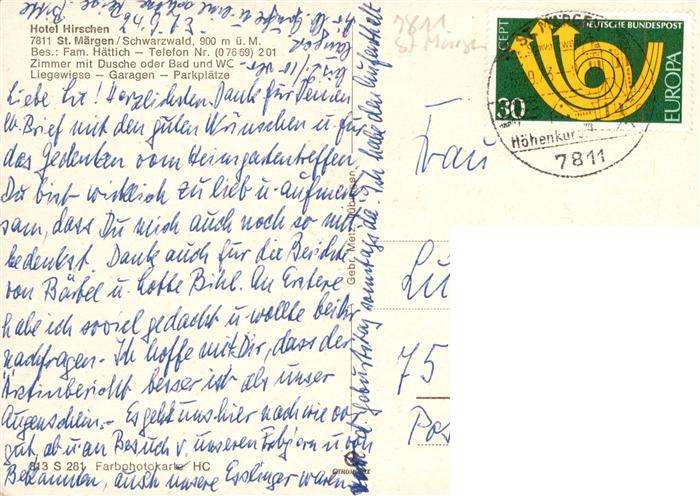 Hotel Hirschen
7811 St. Märgen / Schwarzwald, 900 m ü. M.
Bes.: Fam. Hättich — Telefon Nr. (0 76 69) 2 01
Zimmer mit Dusche oder Bad und WC
Liegewiese — Garagen — Parkplätze
Liebe Lu! Herzlichsten Dank für Deinen
lb. Brief mit den guten Wünschen u. für
das Gedenken vom Heimgartentreffen.
Du bist wirklich zu lieb u. aufmerk-
sam, dass Du mich auch noch so mit
bedenkst. Danke auch für die Berichte
von Bärbel u. Lotte Bihl. An Erstere
habe ich soviel gedacht u. wollte bei ihr
nachfragen. Ich hoffe mit Dir, dass der
Ärztinbericht besser ist als unser
Augenschein. - Es geht uns hier nach wie vor
gut, ab u. an Besuch v. unseren u. von
Bekannten, auch unsere Esslinger waren
813 S 281 Farbphotokarte HC
Geburtstag sonntags da. Ich habe den Aufenthalt
Gebr. Metz, Tübingen
7811
St. Märgen
CEPT
DEUTSCHE BUNDESPOST
EUROPA
30
Höhenkur
7811
Frau
Lu
75
Pos